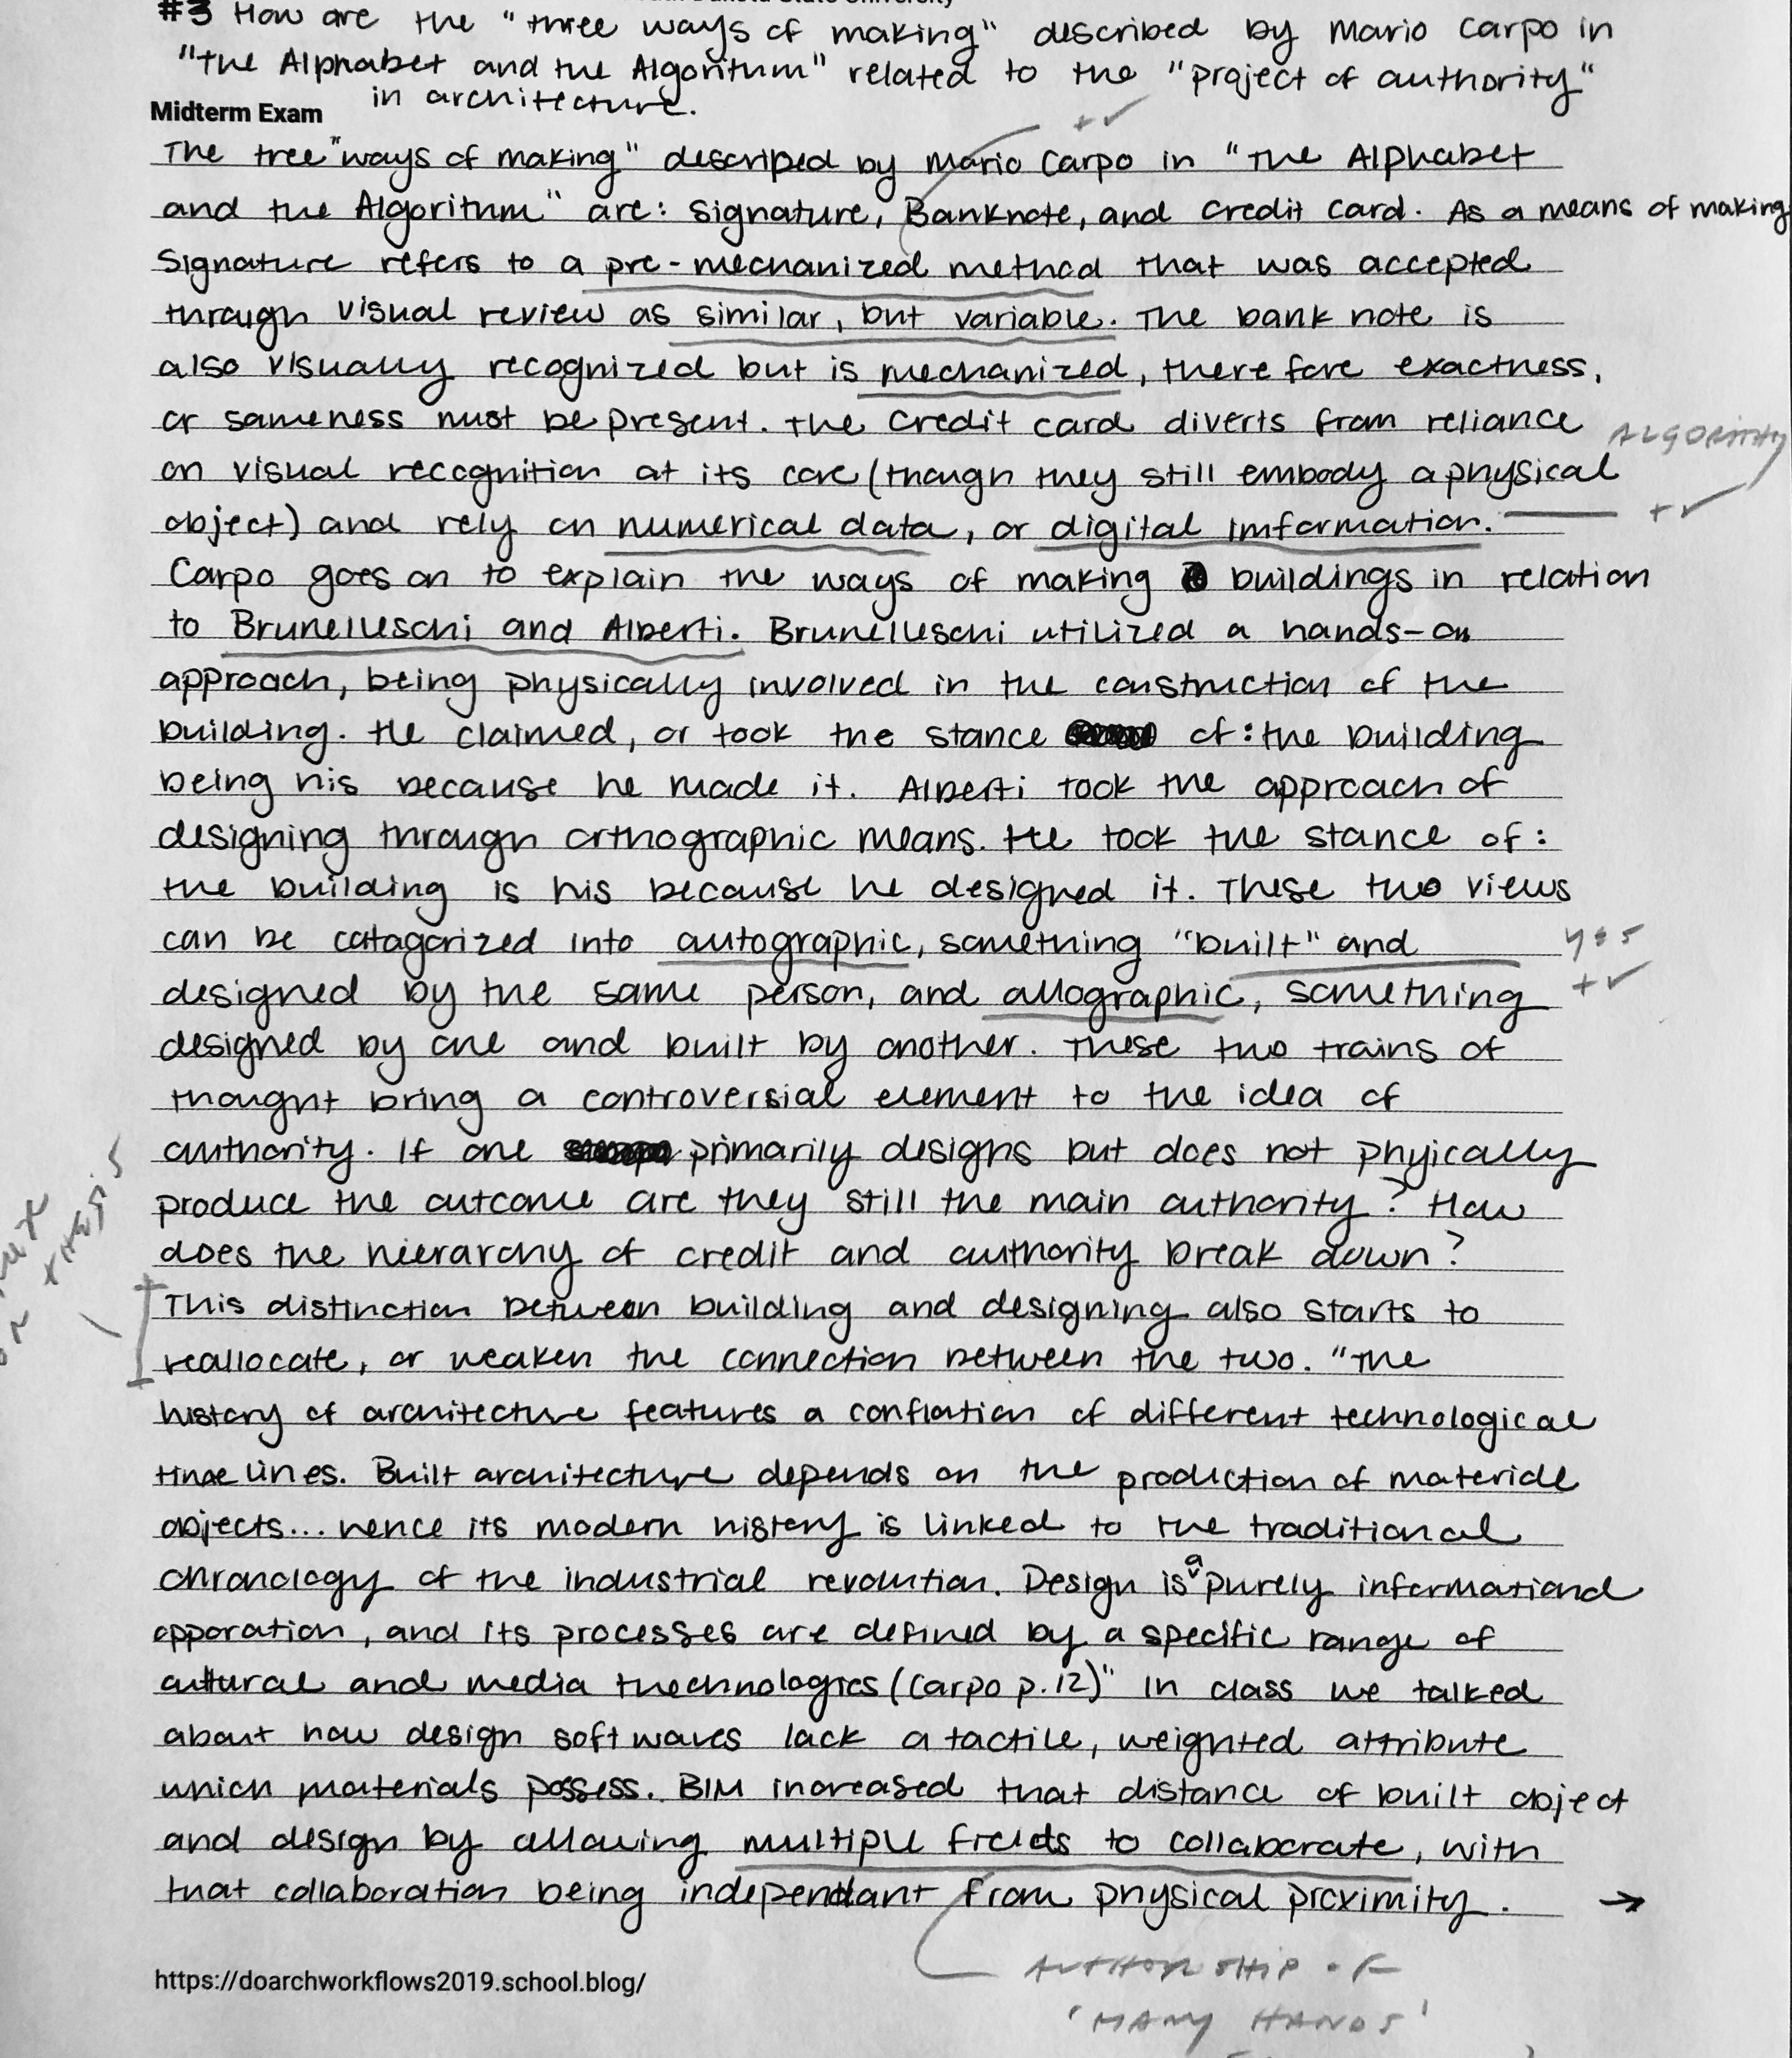 #3 How are the "three ways of making" described by Mario Carpo in
"the Alphabet and the Algorithm" related to the "project of authority"
in architecture.
Midterm Exam
+✓
The tree "ways of making" described by Mario Carpo in "The Alphabet
and the Algorithm" are: Signature, Banknote, and Credit Card. As a means of making
Signature refers to a pre-mechanized method that was accepted
through visual review as similar, but variable. The bank note is
also visually recognized but is mechanized, therefore exactness,
or sameness must be present. The credit card diverts from reliance
ALGORITHM
on visual recognition at its core (though they still embody a physical
object) and rely on numerical data, or digital imformation.
+✓
Carpo goes on to explain the ways of making buildings in relation
to Brunelleschi and Alberti. Brunelleschi utilized a hands-on
approach, being physically involved in the construction of the
building. He claimed, or took the stance of: the building
being his because he made it. Alberti took the approach of
designing through orthographic means. He took the stance of:
the building is his because he designed it. These two views
can be catagorized into autographic, something "built" and
yes
+✓
designed by the same person, and allographic, something
designed by one and built by another. These two trains of
thought bring a controversial element to the idea of
authority. If one primarily designs but does not phyically
produce the outcome are they still the main authority? How
does the hierarchy of credit and authority break down?
THESIS
This distinction between building and designing also starts to
reallocate, or weaken the connection between the two. "The
history of architecture features a conflation of different technological
timelines. Built architecture depends on the production of materiale
objects... hence its modern history is linked to the traditional
chronology of the industrial revolution. Design is a purely informational
opporation, and its processes are defined by a specific range of
cultural and media thechnologies (Carpo p.12)" In class we talked
about how design softwares lack a tactile, weighted attribute
which materials possess. BIM increased that distance of built object
and design by allowing multiple fields to collaborate, with
that collaboration being independant from physical proximity. →
AUTHORSHIP OF
'MANY HANDS'
https://doarchworkflows2019.school.blog/